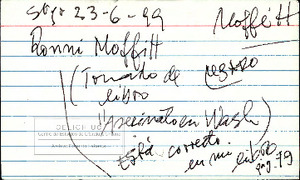 Stgo 23-6-99
Moffitt
Ronni Moffitt
(Tomado de nuestro
libro
"Asesinato en Wash)
Está correcto
en mi libro
pag. 79